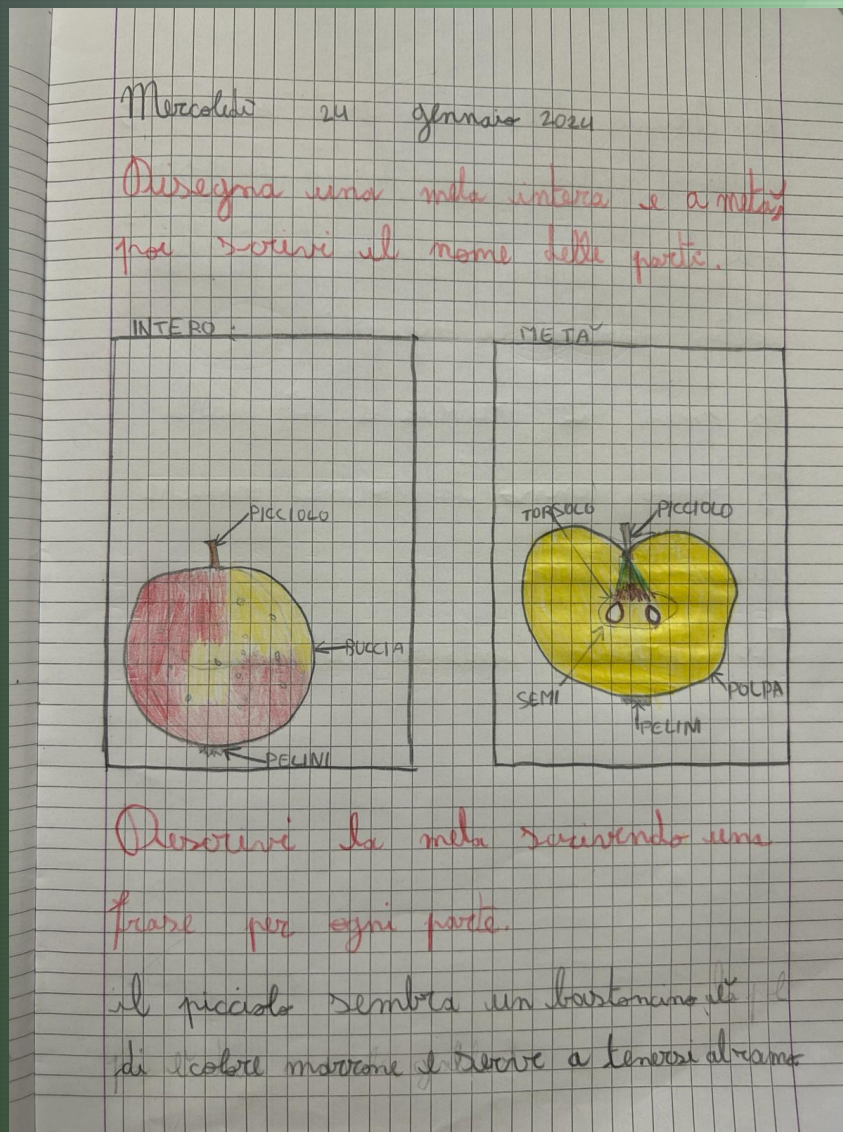 Mercoledì 24 gennaio 2024
Disegna una mela intera e a metà,
poi scrivi il nome delle parti.
INTERO:
METÀ
PICCIOLO
BUCCIA
PELINI
TORSOLO
PICCIOLO
SEMI
POLPA
PELINI
Descrivi la mela scrivendo una
frase per ogni parte.
il picciolo sembra un bastoncino, è
di colore marrone e serve a tenersi al ramo